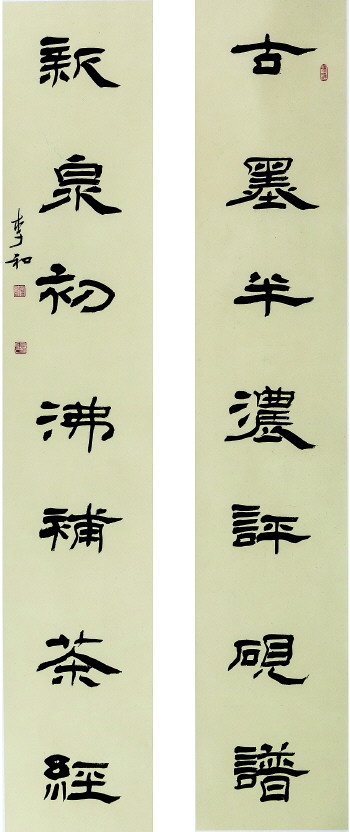 古墨半濃評硯譜
新泉初沸補茶經
李和